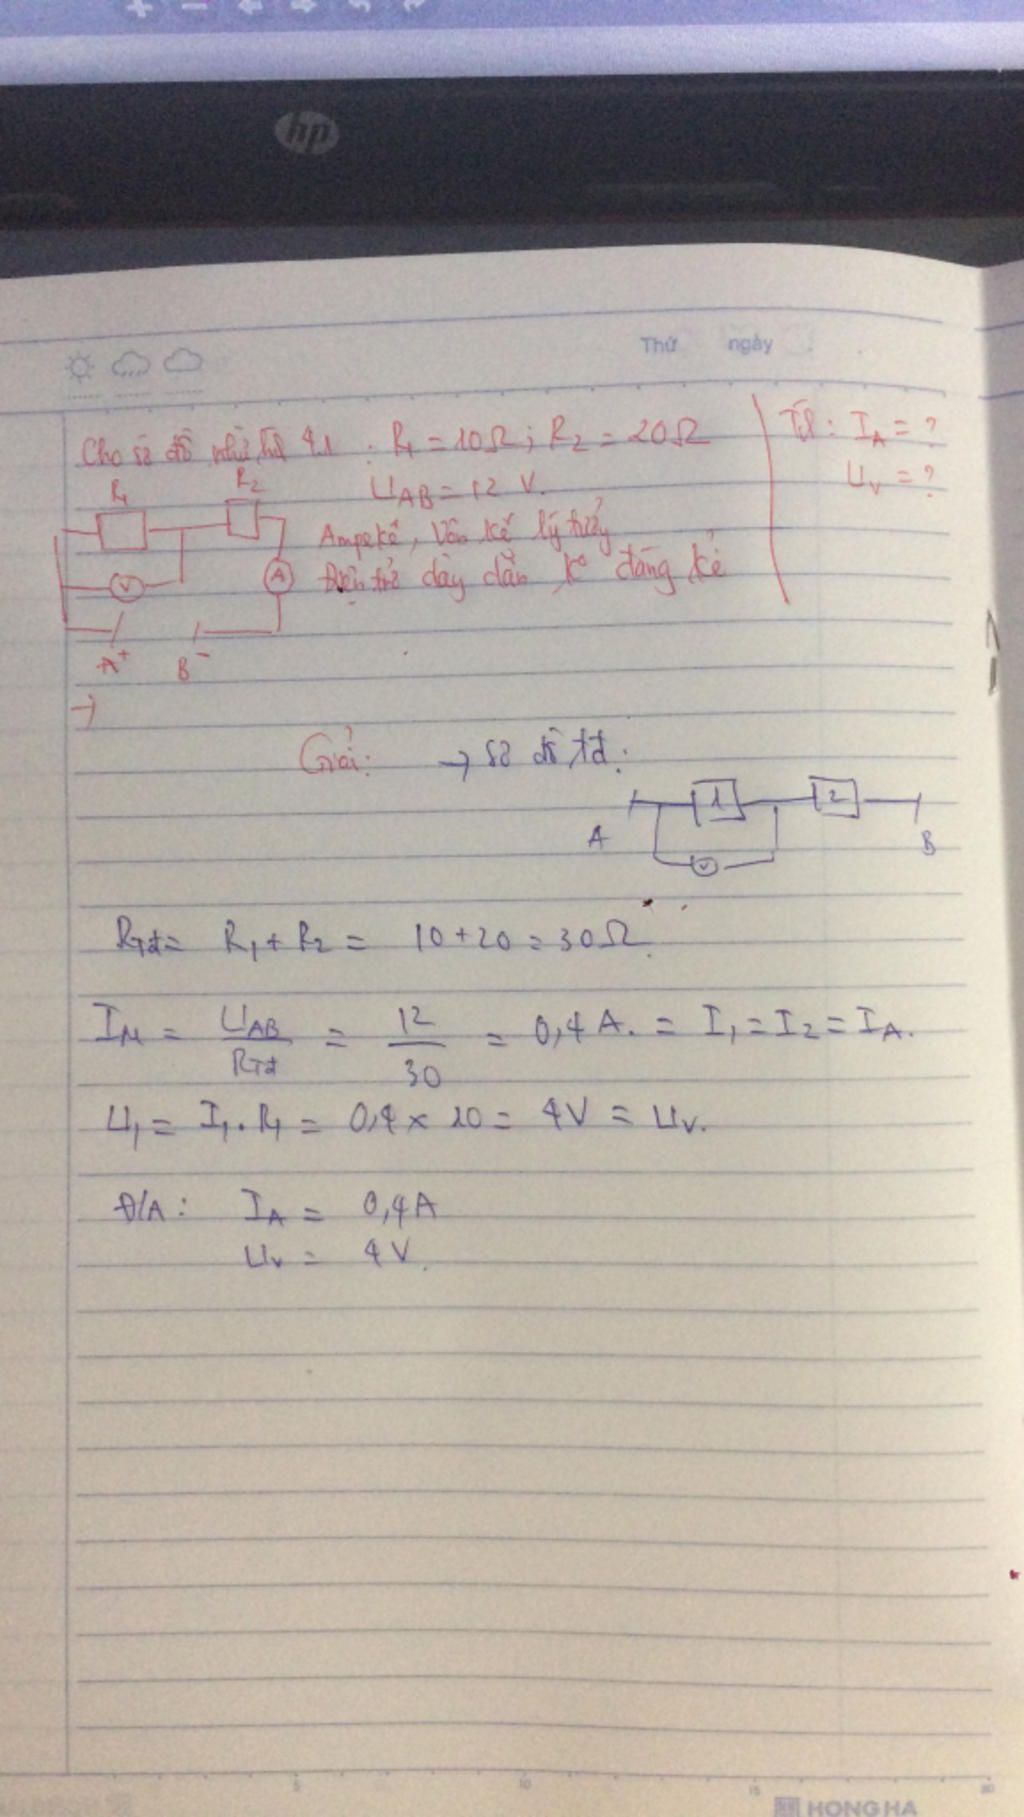 hp
Thứ ngày
Cho sơ đồ như hv 4.1 : R₁ = 10Ω ; R₂ = 20Ω
U_AB = 12 V.
Ampekế, Vôn kế lý tưởng
Điện trở dây dẫn k° đáng kể
R₁ R₂
V
A
A⁺ B⁻
I_A = ?
U_V = ?
Giải: → Sơ đồ tđ:
1 2
A B
V
R_Tđ = R₁ + R₂ = 10 + 20 = 30Ω.
I_M = U_AB / R_Tđ = 12 / 30 = 0,4 A. = I₁ = I₂ = I_A.
U₁ = I₁ . R₁ = 0,4 × 10 = 4V = U_V.
Đ/A: I_A = 0,4A
U_V = 4 V.
5 10 15 20
HONG HA